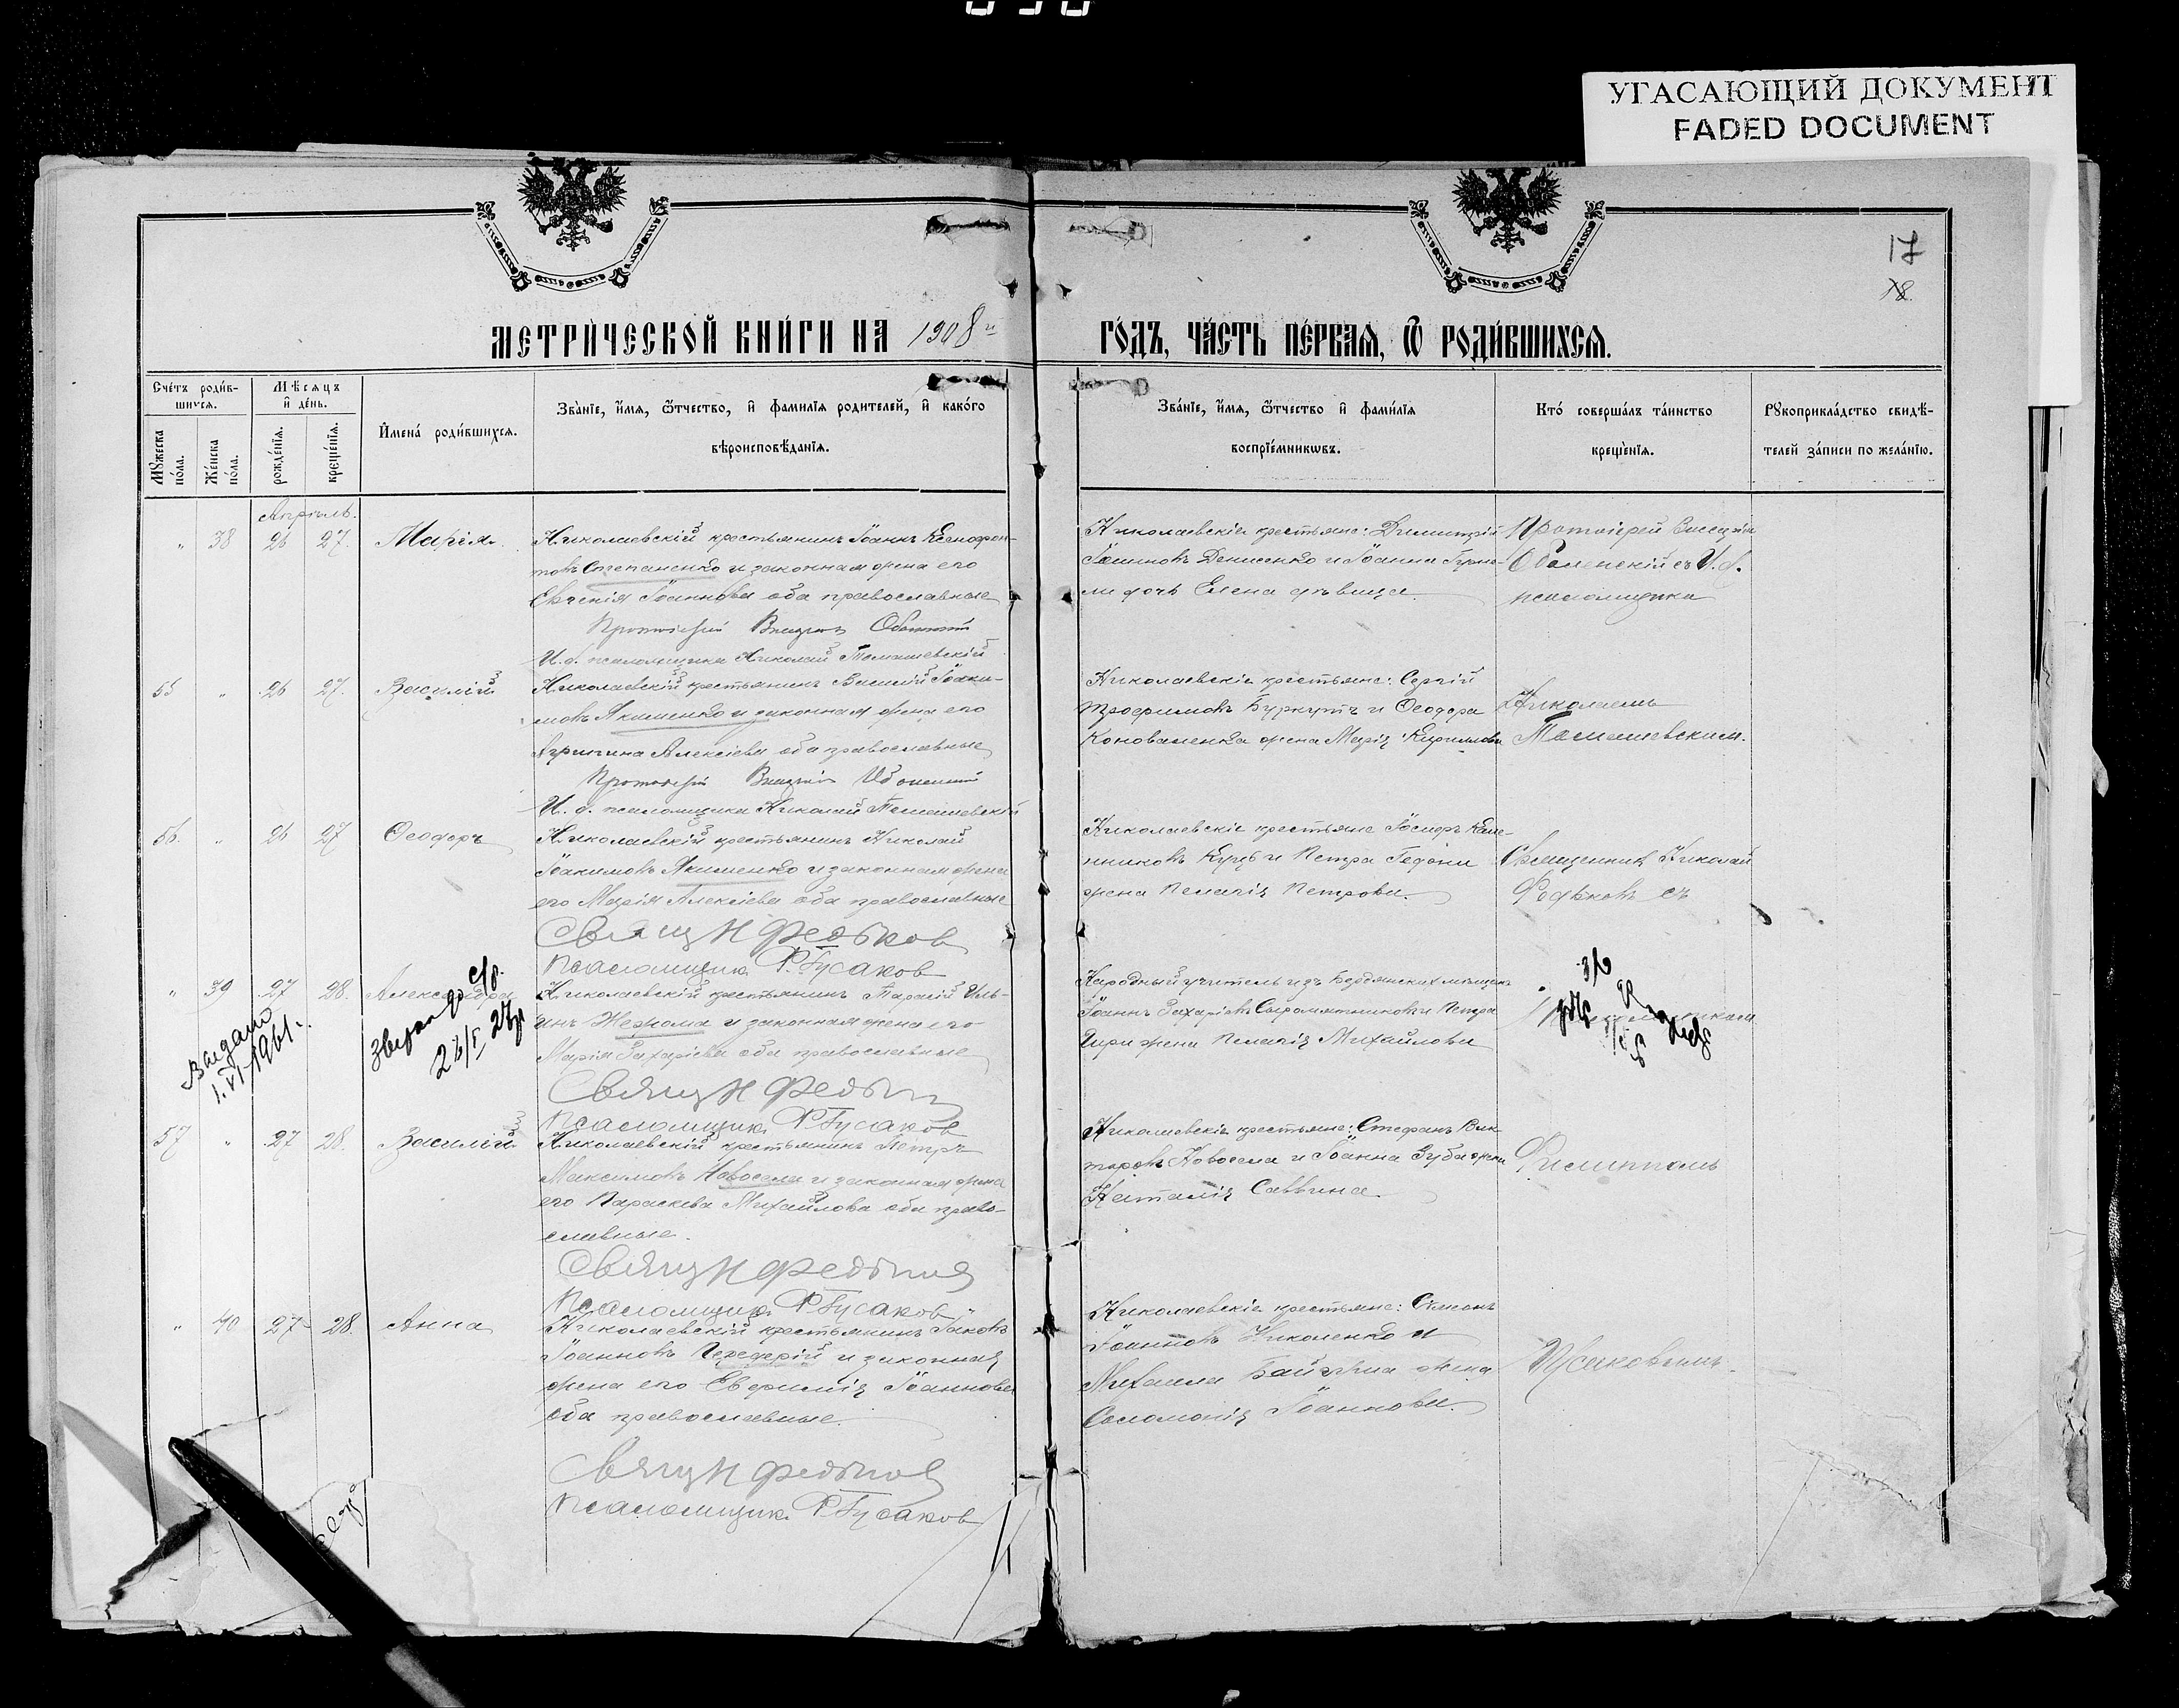 УГАСАЮЩИЙ ДОКУМЕНТ
FADED DOCUMENT
17
18.
МЕТРИ́ЧЕСКОЙ КНИ́ГИ НА 1908й ГО́ДЪ, ЧА́СТЬ ПЕ́РВАЯ, Ѿ РОДИ́ВШИХСЯ.
Сче́тъ роди́в-
шихся.
Мѣсяцъ
и де́нь.
Му́жеска
по́ла.
Же́нска
по́ла.
рожде́нія.
креще́нія.
Имена́ роди́вшихся.
Зва́нїе, и́мя, ѻ́тчество, и фами́лїя роди́телей, и како́го
вѣроисповѣ́данїя.
Зва́нїе, и́мя, ѻ́тчество и фами́лїя
воспрїе́мникѡвъ.
Кто́ соверша́лъ та́инство
креще́нїя.
Рукоприкла́дство свидѣ́-
телей за́писи по жела́нїю.
Апрѣль.
" 38 26 27. Марія.
Николаевскій крестьянинъ Іоаннъ Ксенофон-
товъ Степаненко и законная жена его
Евгенія Іоаннова оба православные
И.д. псаломщика Николай Томашевскій
Николаевскіе крестьяне: Димитрій
Іоанновъ Денисенко и Іоанна
дочь Елена дѣвица.
Протоіерей
Оболенскій съ И.д.
псаломщика
55 " 26 27. Василій
Николаевскій крестьянинъ Василій Іоаки-
мовъ Якименко и законная жена его
Агрипина Алексіева оба православные
И.д. псаломщика Николай Томашевскій
Николаевскіе крестьяне: Сергій
Трофимовъ Буркутъ и Ѳеодора
Коноваленка жена Марія Кириллова
Николаемъ
Томашевскимъ.
56. " 26 27 Ѳеодоръ
Николаевскій крестьянинъ Николай
Іоакимовъ Якименко и законная жена
его Марія Алексіева оба православные
Свящ Н Федьков
Псаломщик Ф. Гусаков
Николаевскіе крестьяне Іосифъ
и Петра
жена Пелагія Петрова.
Священникъ Николай
Федьковъ съ
" 39 27 28. Александра
Николаевскій крестьянинъ Тарасій Иль-
инъ и законная жена его
Марія Захаріева оба православные
Свящ Н
Псаломщик Ф. Гусаков
Народный учитель изъ Бердянскихъ мѣщанъ
Іоаннъ Захаріевъ Сыромятниковъ и Петра
жена Пелагія Михайлова
Выдано
1.VI-1961г.
57 " 27 28. Василій
Николаевскій крестьянинъ Петръ
Максимовъ Новосела и законная жена
его Параскева Михайлова оба право-
славные.
Свящ Н Федьков
Псаломщик Ф. Гусаков
Николаевскіе крестьяне: Стефанъ Вик-
торовъ Новосела и Іоанна Зуба жена
Наталія Саввина.
Филиппомъ
" 40 27 28. Анна
Николаевскій крестьянинъ Іаковъ
Іоанновъ и законная
жена его Евфимія Іоаннова
оба православные.
Свящ Н Федьков
Псаломщик Ф. Гусаков
Николаевскіе крестьяне: Симеонъ
Іоанновъ Николенко и
Михаила жена
Соломонія Іоаннова.
Гусаковымъ.